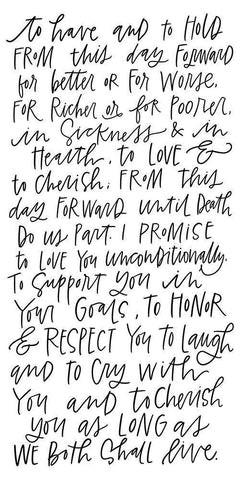 to have and to HOLD
FROM this day FORWARD
for better OR FOR WORSE,
FOR RicheR or foR PooReR,
in SickNess & in
Health, to LOVE &
to Cherish; FROM this
day FORWARD until Death
Do us PaRt. I PROMISE
to LOVE You unconditionally.
To Support you in
Your Goals, to HONOR
& RESPECT You to Laugh
and to CRy with
You and to Cherish
you as LONG as
WE Both Shall live.